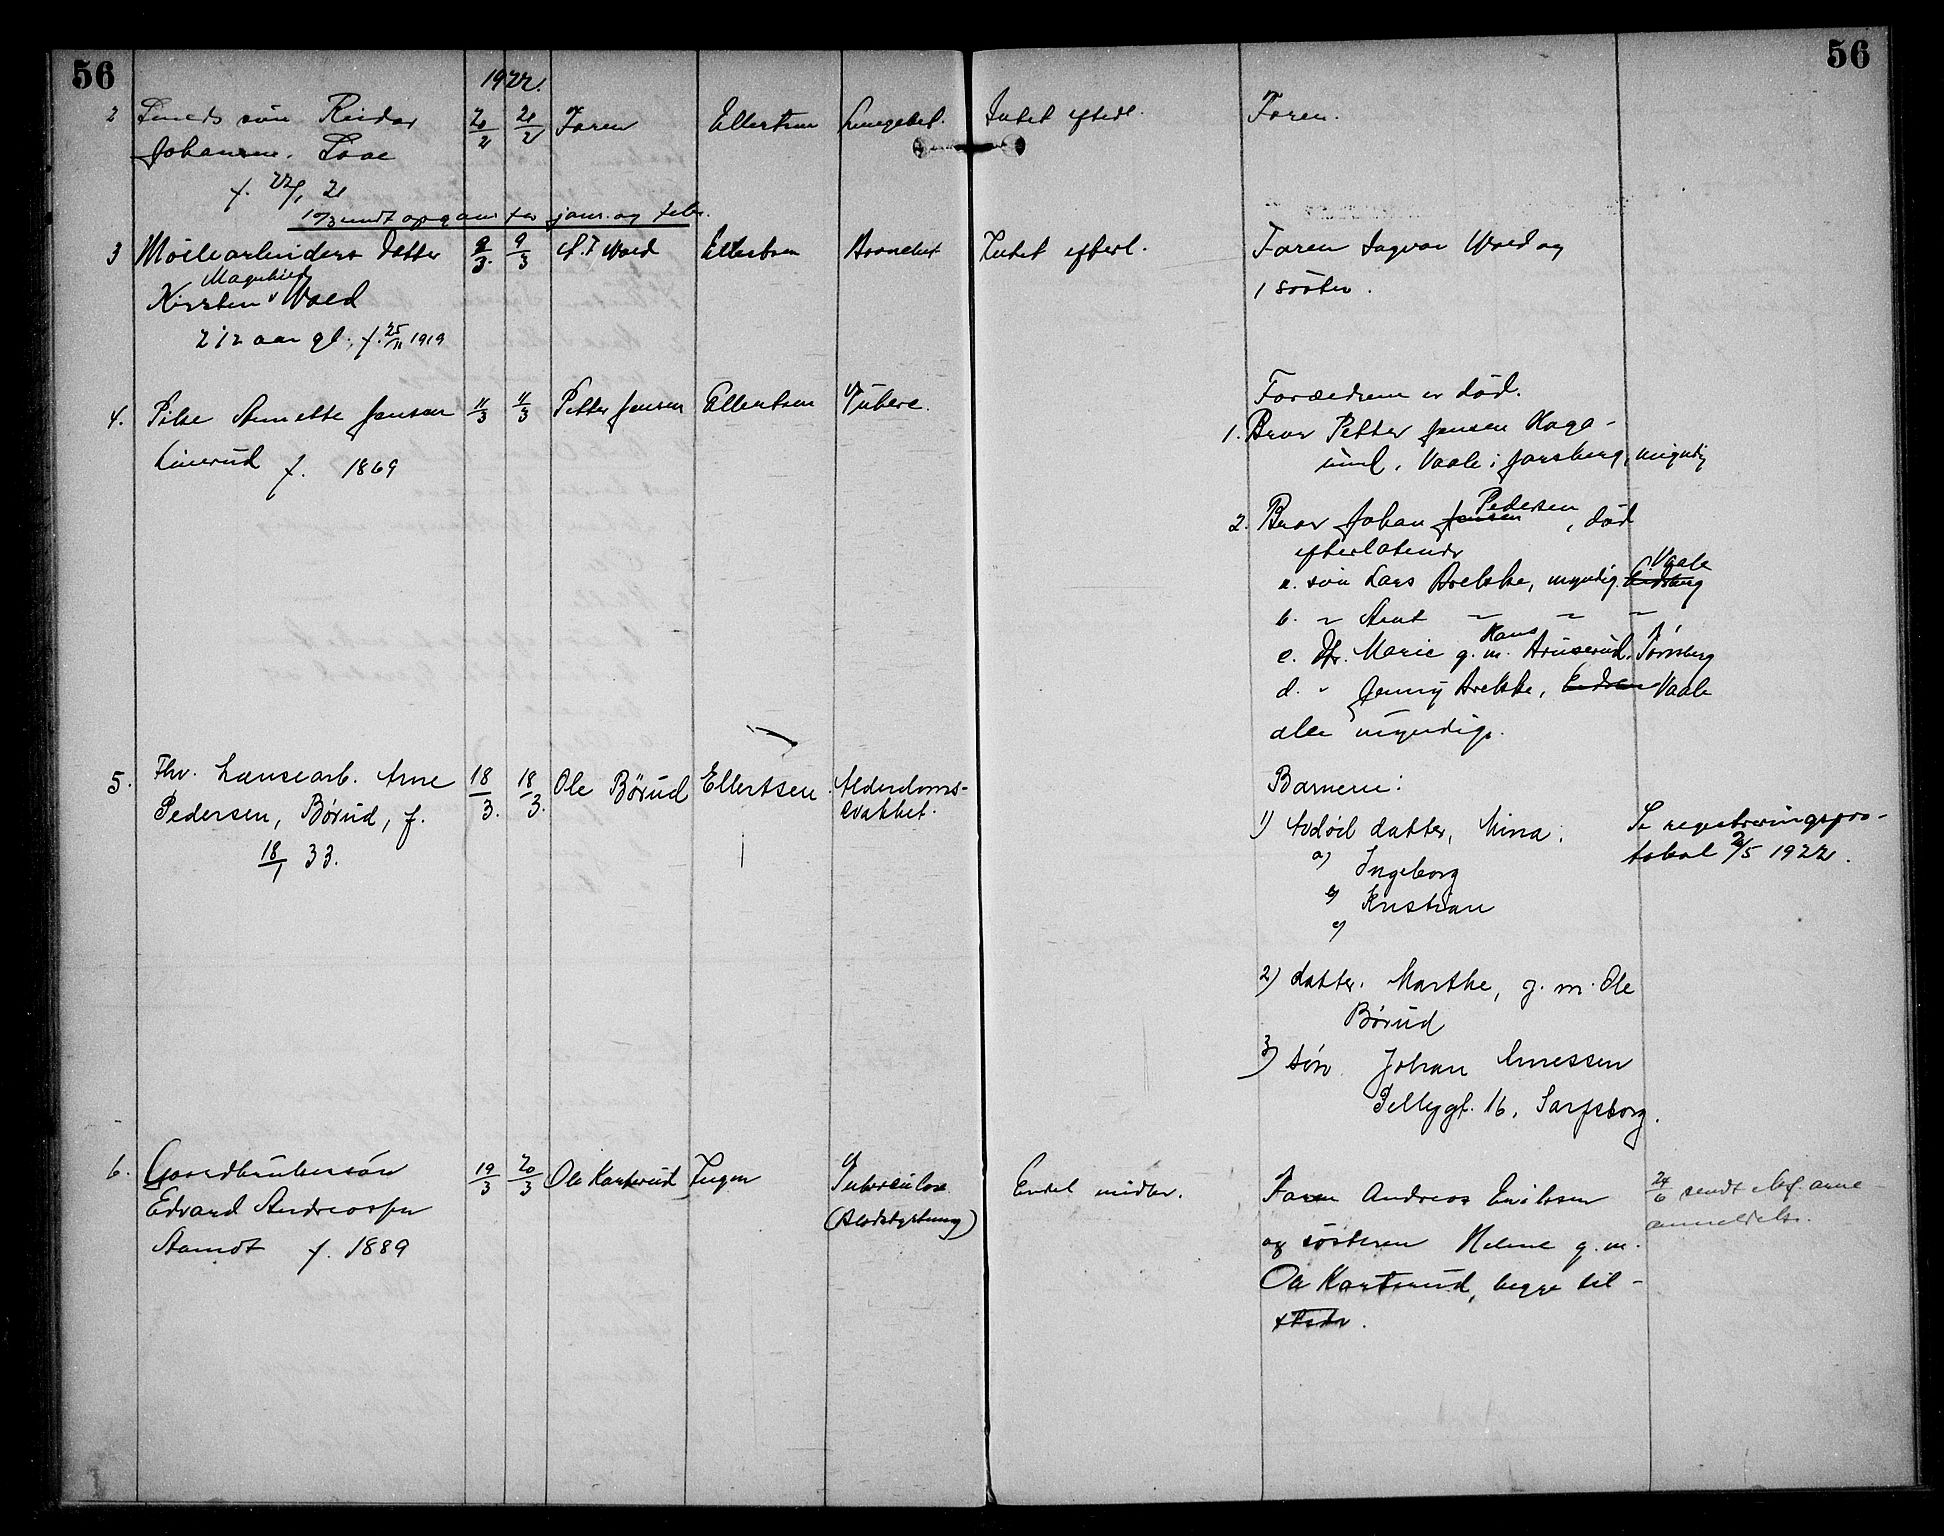 56
1922.
56
2 Smeds søn Reidar 20/2 21/2 Faren Ellertsen Lungebet. Intet efterl. Faren.
Johansen.
f. 22/1 21
10/3 sendt opgave for jan. og febr.
3 Møllearbeiders datter 9/3 9/3 Wold Ellertsen Intet efterl. Faren Ingvar Wold og
Magnhild
Kirsten Wold 1 søster.
2 1/2 aar gl., f. 25/11 1919
4. Pike Annette Jensen 11/3 11/3 Petter Jensen Ellertsen Tuberc. Forældrene er død.
Linerud f. 1869
1. Bror Petter Jensen Hage-
lund, Vaale i Jarlsberg, myndig
2. Bror Johan Jensen Pedersen, død
efterlatende
a. søn Lars Brekke, myndig. Vaale
b. " Arnt " " "
c. Dtr. Marie g. m. Hans Bruserud, Tønsberg
d. " Jenny Brekke, Vaale
alle myndige.
5. Fhv. Lænsearb. Arne 18/3. 18/3. Ole Børud Ellertsen. Alderdoms- Barnene:
Pedersen, Børud, f. svakhet.
18/1 33.
1) Avdød datter, Mina: Se registreringspro-
a) Ingeborg tokol 2/5 1922.
b) Kristian
c)
2) datter. Marthe, g. m. Ole
Børud
3) søn Johan Arnessen
Pellyggt. 16, Sarpsborg.
6. Gaardbrukersøn 19/3 20/3 Ole Karterud Ingen Tuberculose Endel midler. Faren Andreas Eriksen 24/6 sendt arve-
Edvard Andreassen (Blodstyrtning) og søsteren Helene g. m. anmeldelse.
Aamodt f. 1889 Ole Karterud, begge til-
stede.